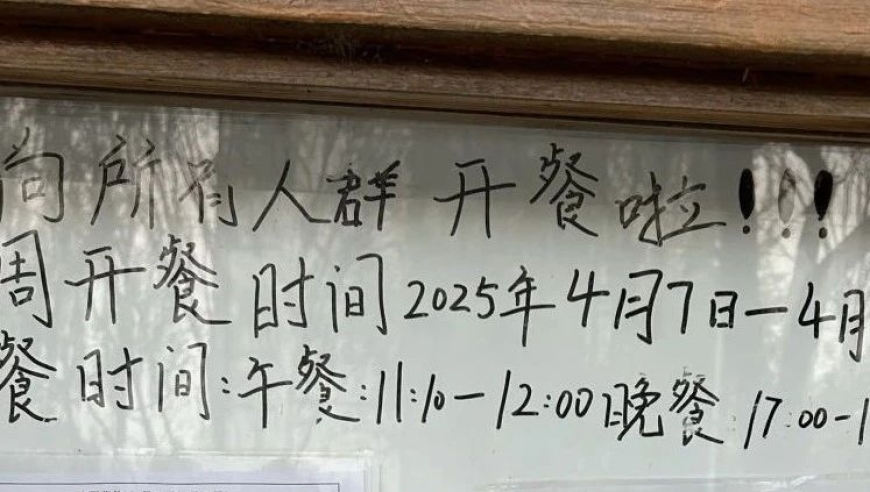 向所有人群开餐啦!!!
周开餐时间2025年4月7日—4月
餐时间:午餐:11:10—12:00晚餐17:00-1